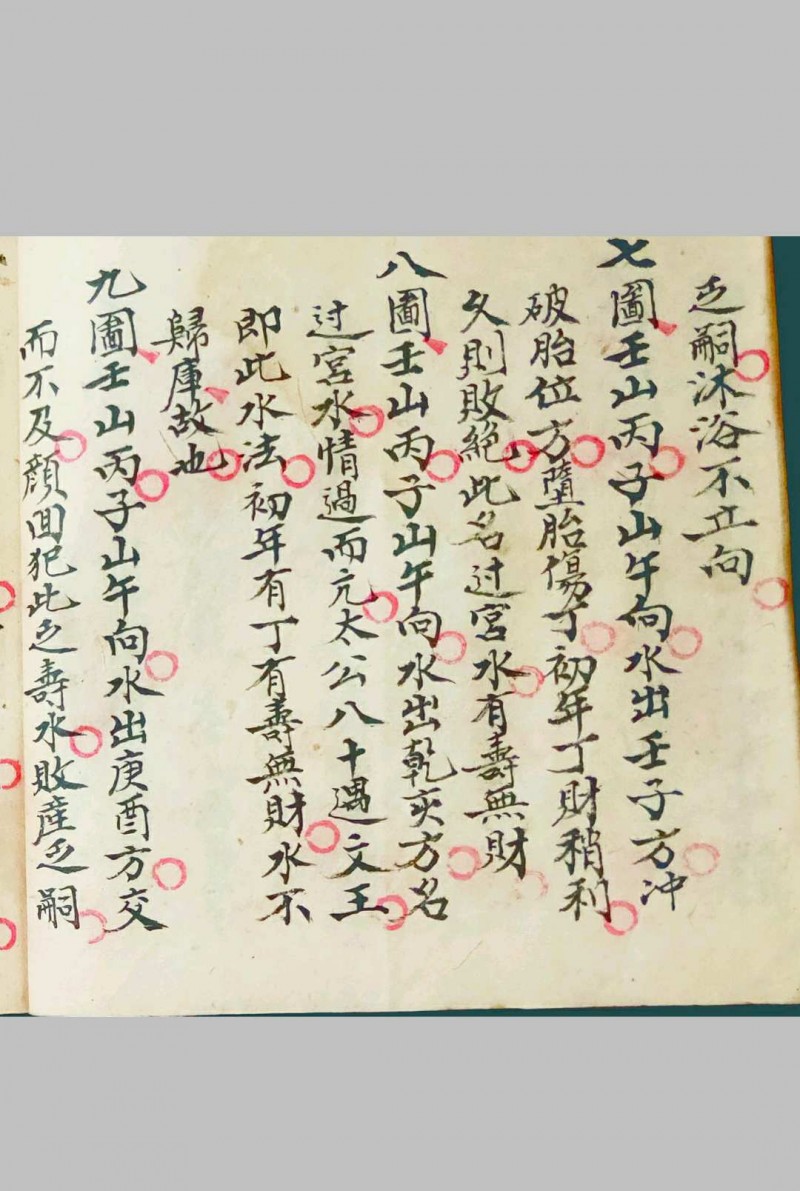 乏嗣沐浴不立向
七圖壬山丙子山午向水出壬子方冲
破胎位方墮胎傷丁初年丁財稍利
久則敗絕此名过宮水有壽無財
八圖壬山丙子山午向水出乾亥方名
过宮水情過而亢太公八十遇文王
即此水法初年有丁有壽無財水不
歸庫故也
九圖壬山丙子山午向水出庚酉方交
而不及顔囬犯此乏壽水敗產乏嗣